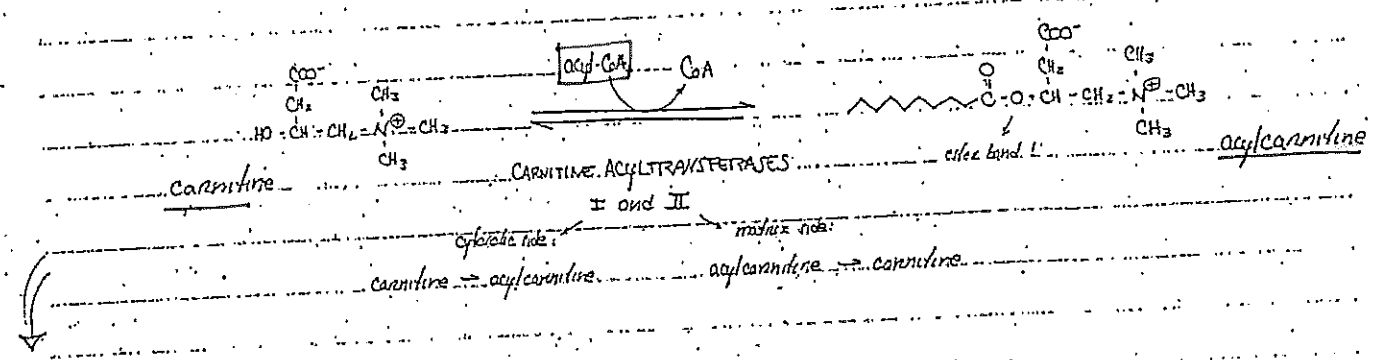 acyl-CoA CoA
COO⁻
CH₂ CH₃
HO-CH-CH₂-N⊕-CH₃
CH₃
carnitine
CARNITINE ACYLTRANSFERASES
I and II
COO⁻
O CH₂ CH₃
C-O-CH-CH₂-N⊕-CH₃
CH₃
ester bond !
acylcarnitine
cytosolic side: matrix side:
carnitine → acylcarnitine acylcarnitine → carnitine